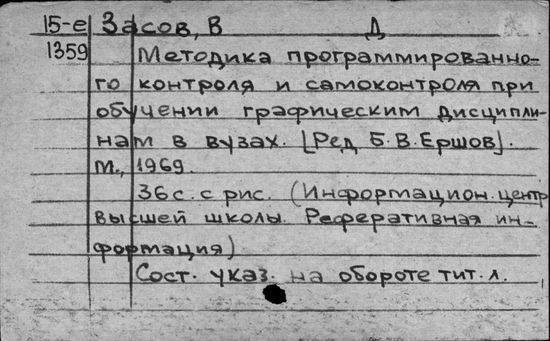 15-е Засов, В Д
1359 Методика программированно-
го контроля и самоконтроля при
обучении графическим дисципли-
нам в вузах. [Ред Б.В.Ершов].
М., 1969.
36с. с рис. (Информацион. центр
высшей школы. Реферативная ин-
формация)
Сост. указ. на обороте тит. л.